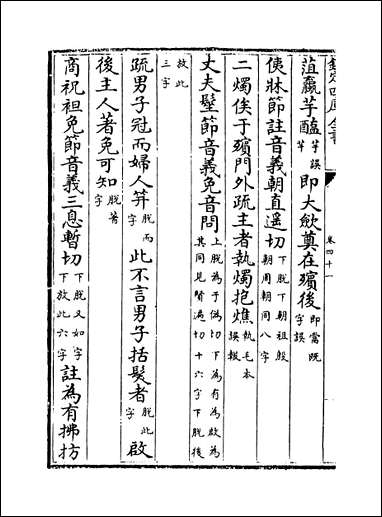 欽定四庫全書
卷四十一
菹蠃芋醢芋誤芋即大斂奠在殯後即當既字誤
使牀節註音義朝直遥切下脱下朝祖殷朝周朝同八字
二燭俟于殯門外疏主者執燭抱燋執毛本誤報
丈夫髽節音義免音問上脱為于偽切下為有為啟為其同見賢遍切十六字下脱後
故此三字
疏男子冠而婦人笄脱而字此不言男子括髮者脱此字啟
後主人著免可知脱著字
商祝袒免節音義三息暫切下脱又如字下放此六字註為有拂坊